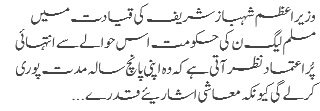 وزیر اعظم شہباز شریف کی قیادت میں
مسلم لیگ ن کی حکومت اس حوالے سے انتہائی
پُر اعتماد نظر آتی ہے کہ وہ اپنی پانچ سالہ مدت پوری
کرلے گی کیونکہ معاشی اشاریئے قدرے...